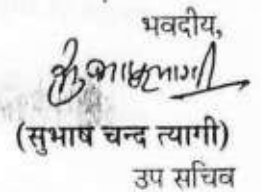 भवदीय,
(सुभाष चन्द त्यागी)
उप सचिव